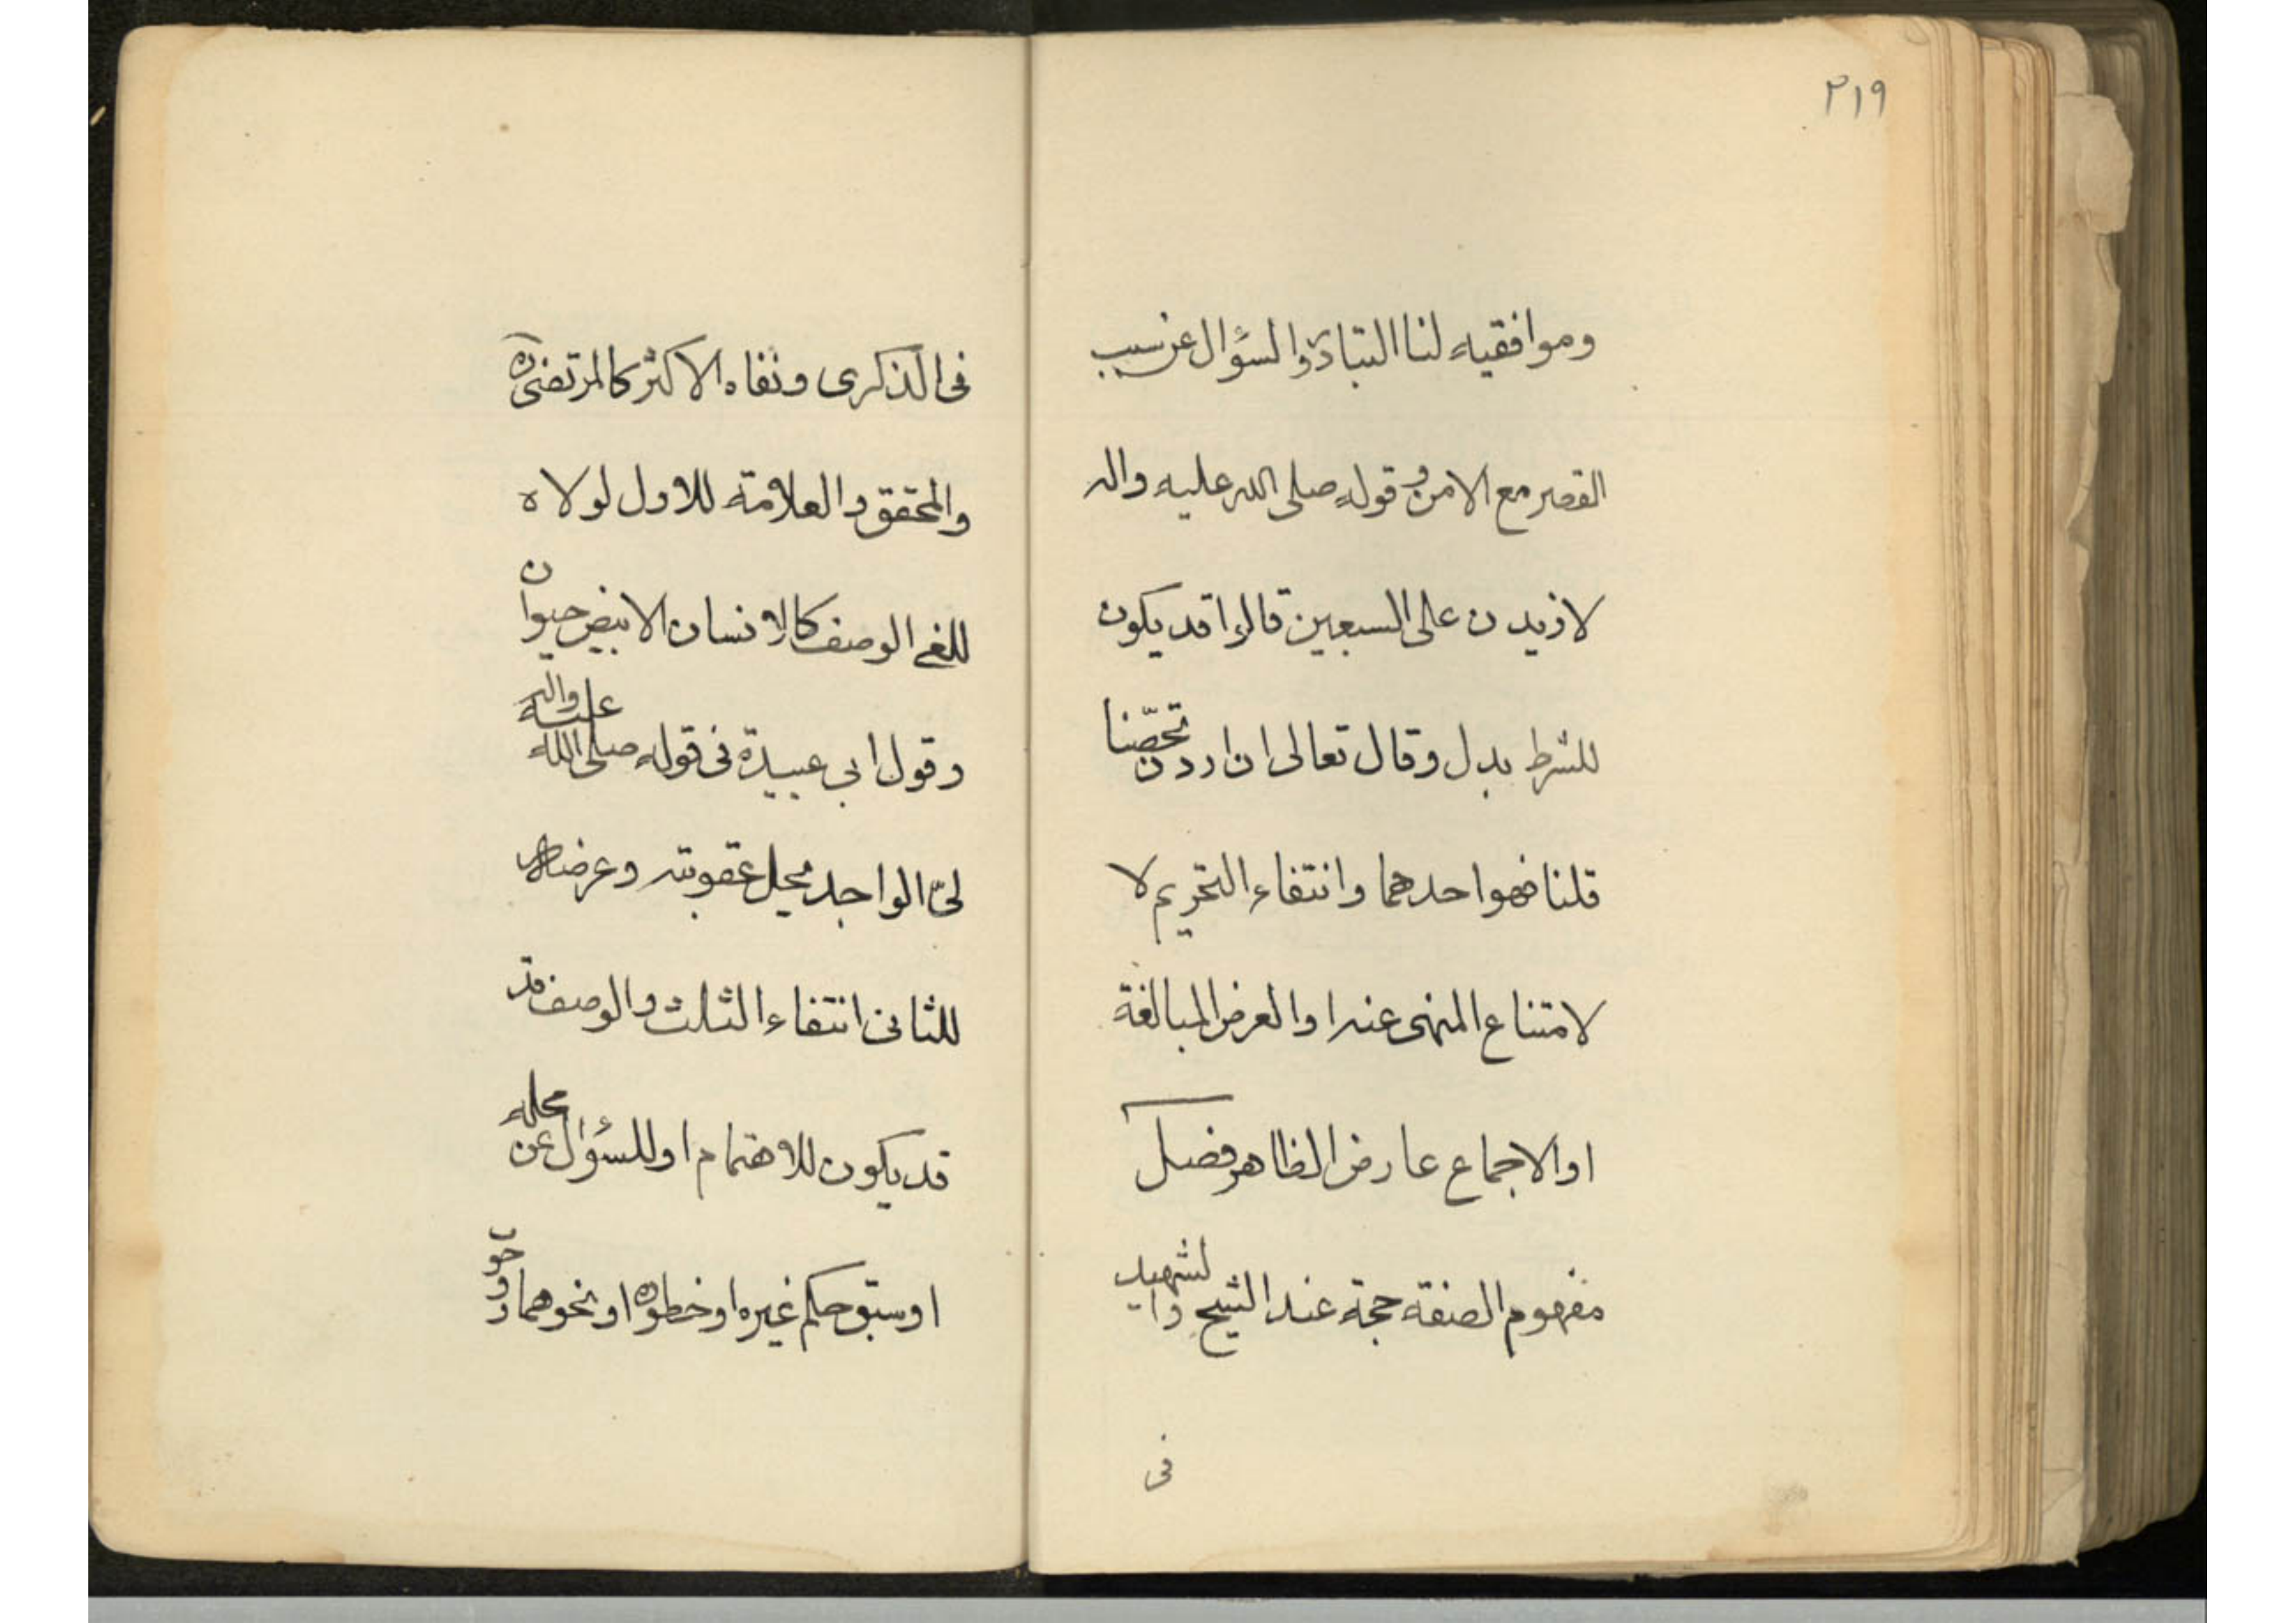 ٢١٩
وموافقيه لنا التبادر والسؤال عن سبب
القصر مع الامن وقوله صلى الله عليه واله
لازيدن على السبعين قالوا قد يكون
للشرط بدل وقال تعالى ان اردن تحصّنا
قلنا فهو احدهما وانتفاء التحريم لا
لامتناع المنهى عنه او الغرض المبالغة
او الاجماع عارض الظاهر فصل
مفهوم الصفة حجة عند الشيخ والشهيد
فى
فى الذكرى ونفاه الاكثر كالمرتضى ره
والمحقق والعلامة للاول لولاه
للغى الوصف كالانسان الابيض حيوان
وقول ابى عبيدة فى قوله صلى الله عليه واله
لىّ الواجد يحل عقوبته وعرضه
للثانى انتفاء الثلث والوصف قد
قد يكون للاهتمام او للسؤال عن محله
او سبق حكم غيره او خطوره او نحوهما و